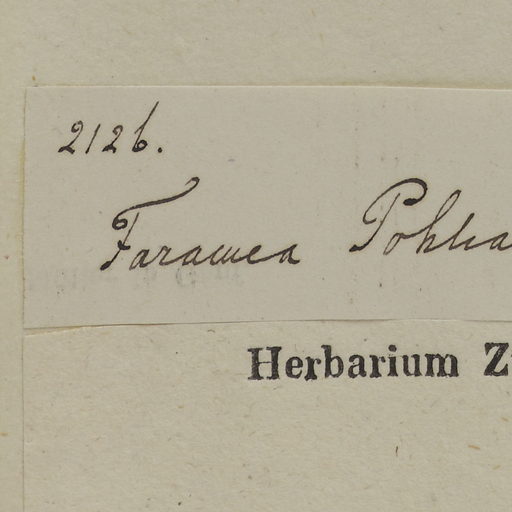 2126.
Faramea Pohlia
Herbarium Z